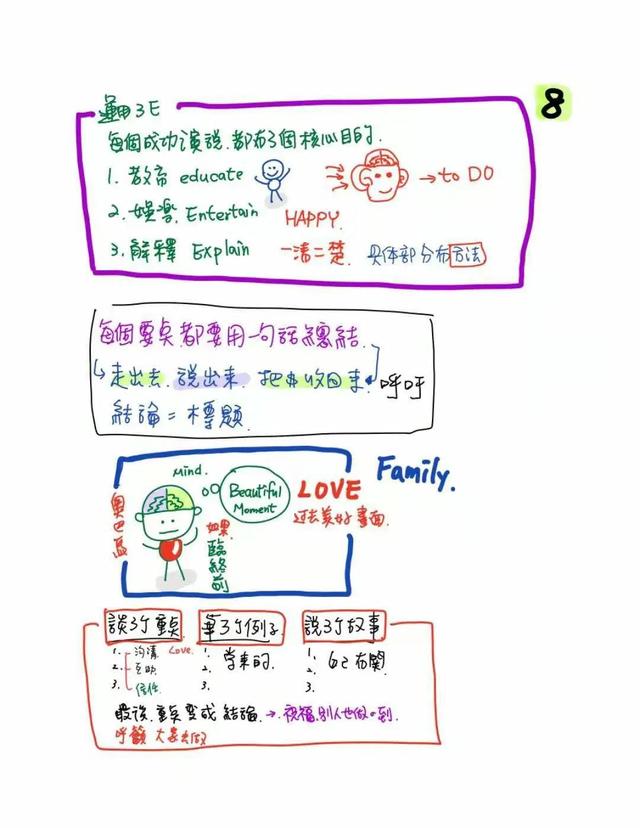 8
運用3E
每個成功演說,都有3個核心目的.
1. 教育 educate → to DO
2. 娛樂. Entertain HAPPY.
3. 解釋 Explain 一清二楚. 具体部分布方法
每個要点都要用一句話總結.
↳走出去. 說出來. 把 收回來. 呼呼
結論 = 標題.
Mind. Family.
Beautiful Moment LOVE
過去美好畫面.
奧巴馬
如果 臨終前
談3个重点 舉3个例子 說3个故事
1. 溝通 Love. 1. 学來的. 1. 自己有關
2. 互助. 2. 2.
3. 信任. 3. 3.
最後.重点変成 結論. → 祝福.別人也做の到.
呼籲 大家去做